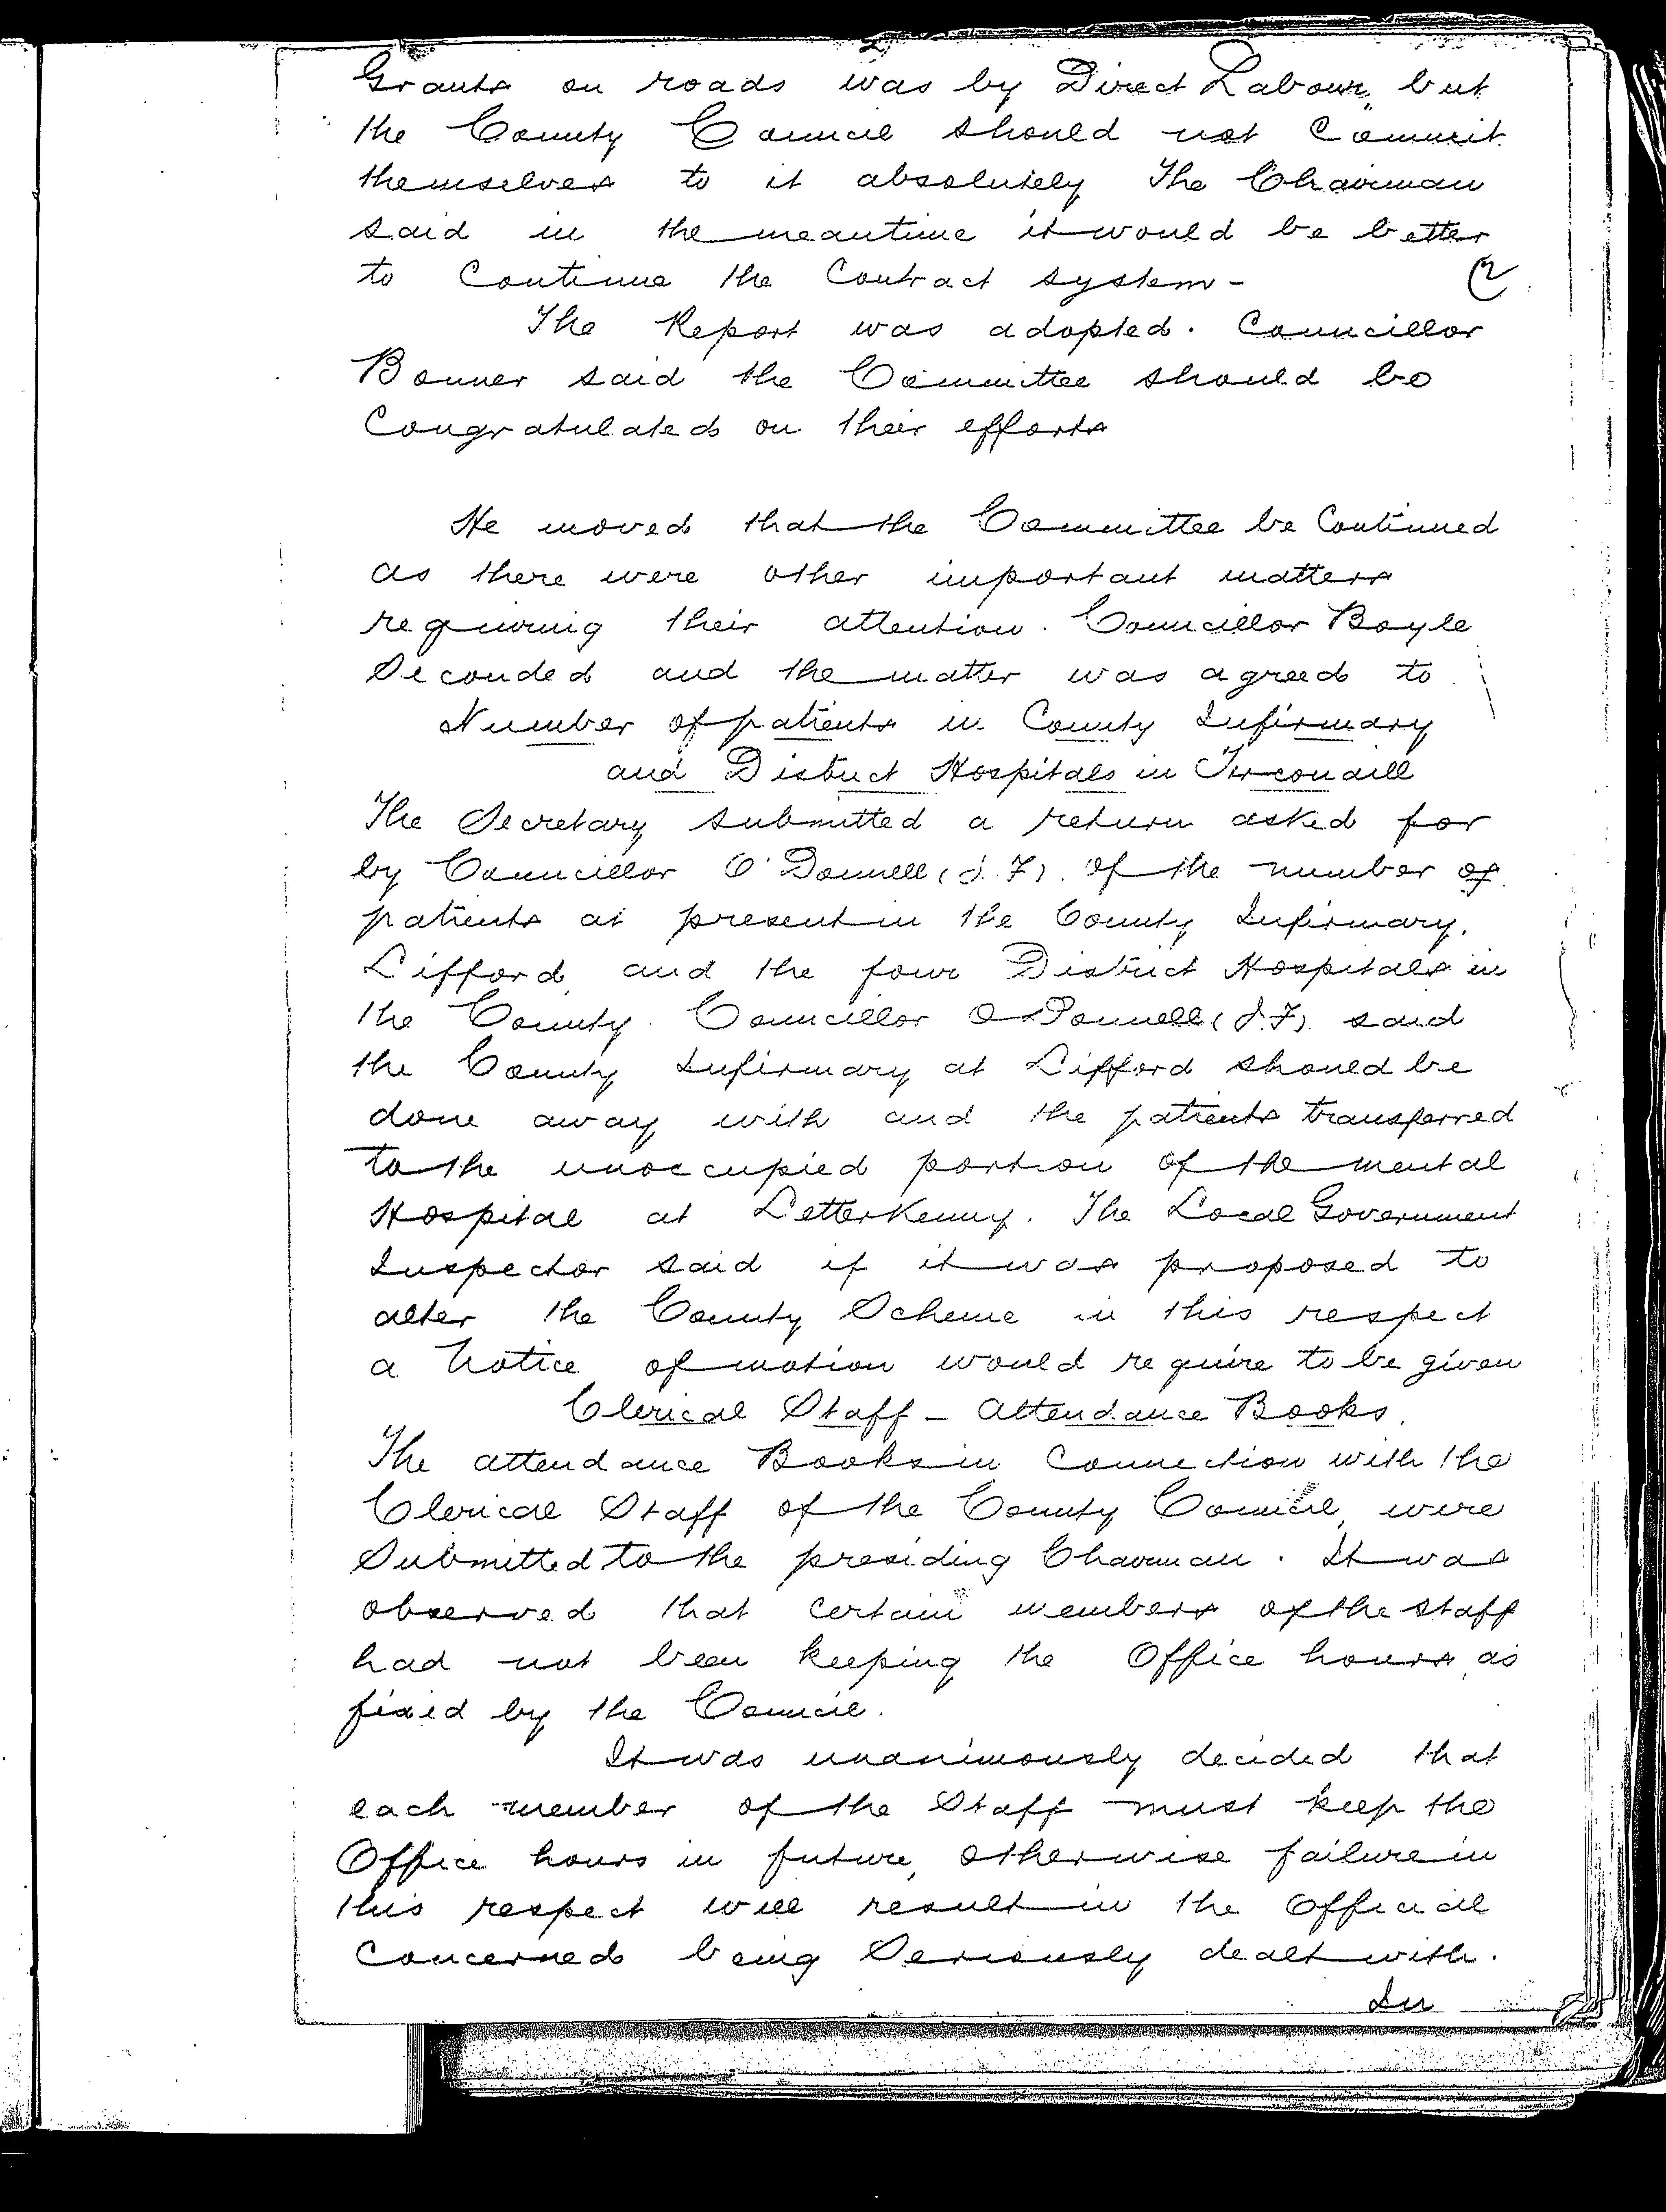 Grants on roads was by Direct Labour, but
the County Council should not Commit
themselves to it absolutely The Chairman
said in the meantime it would be better
to Continue the Contract system -
The Report was adopted. Councillor
Bonner said the Committee should be
Congratulated on their efforts
He moved that the Committee be Continued
as there were other important matters
requiring their attention. Councillor Boyle
Seconded and the matter was agreed to
Number of patients in County Infirmary
and District Hospitals in Tirconaill
The Secretary submitted a return asked for
by Councillor O'Donnell (J.F). of the number of
patients at present in the County Infirmary,
Lifford, and the four District Hospitals in
the County. Councillor O'Donnell (J.F). said
the County Infirmary at Lifford should be
done away with and the patients transferred
to the unoccupied portion of the mental
Hospital at Letterkenny. The Local Government
Inspector said if it was proposed to
alter the County Scheme in this respect
a Notice of motion would require to be given
Clerical Staff - Attendance Books.
The attendance Books in Connection with the
Clerical Staff of the County Council, were
Submitted to the presiding Chairman. It was
observed that certain members of the staff
had not been keeping the Office hours as
fixed by the Council.
It was unanimously decided that
each member of the Staff must keep the
Office hours in future, otherwise failure in
this respect will result in the Official
Concerned being Seriously dealt with.
In